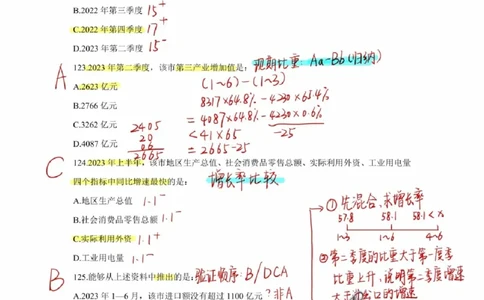 B.2022 年第三季度 15⁺
C.2022 年第四季度 17⁺
D.2023 年第二季度 15⁻
123.2023 年第二季度，该市第三产业增加值是： 现期比重 Aa-Bb(归纳)
A
A.2623 亿元 (1~6)-(1~3)
B.2766 亿元 8317×64.8%-4230×65.4%
C.3262 亿元 = 4087×64.8%-4230×0.6%
D.4087 亿元 <41×65 -25
2405
20
86
2665 = 2665-25
C
124.2023 年上半年，该市地区生产总值、社会消费品零售总额、实际利用外资、工业用电量
四个指标中同比增速最快的是： 增长率比较
A.地区生产总值 1.1⁻
B.社会消费品零售总额 1.1⁻
C.实际利用外资 1.1⁺
D.工业用电量 1.1⁻
→①先混合，求增长率
57.8 58.1 58.1<x
1~3 1~6 4~6
②第二季度的比重大于第一度季
比重上升，说明第二季度增速
B
125.能够从上述资料中推出的是： 验证顺序：B/DCA
A.2023 年 1—6 月，该市进口额没有超过 1100 亿元？非A